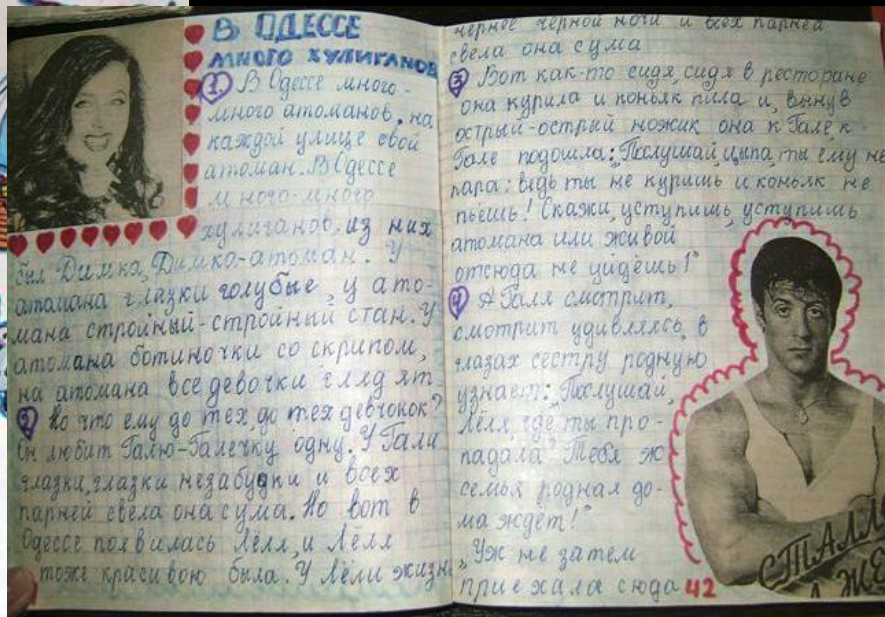 В ОДЕССЕ
МНОГО ХУЛИГАНОВ
1. В Одессе много-
много атоманов, на
каждой улице свой
атоман. В Одессе
много-много
хулиганов, из них
был Димка, Димка-атоман. У
атомана глазки голубые, у ато-
мана стройный-стройный стан. У
атомана ботиночки со скрипом,
на атомана все девочки глядят
2 Но что ему до тех, до тех девчонок?
Он любит Галю-Галечку одну. У Гали
глазки, глазки незабудки и всех
парней свела она с ума. Но вот в
Одессе появилась Лёля, и Лёля
тоже красивою была. У Лёли жизнь
чернее чёрной ночи и всех парней
свела она с ума
3 Вот как-то сидя, сидя в ресторане
она курила и коньяк пила и, вынув
острый-острый ножик она к Гале, к
Гале подошла: „Послушай цыпа, ты ему не
пара: ведь ты не куришь и коньяк не
пьёшь! Скажи, уступишь, уступишь
атомана или живой
отсюда не уйдёшь!"
4 А Галя смотрит,
смотрит удивляясь, в
глазах сестру родную
узнаёт: „Послушай,
Лёля, где ты про-
падала? Тебя ж
семья родная до-
ма ждёт!"
„Уж не затем
приехала сюда 42
СТАЛЛО